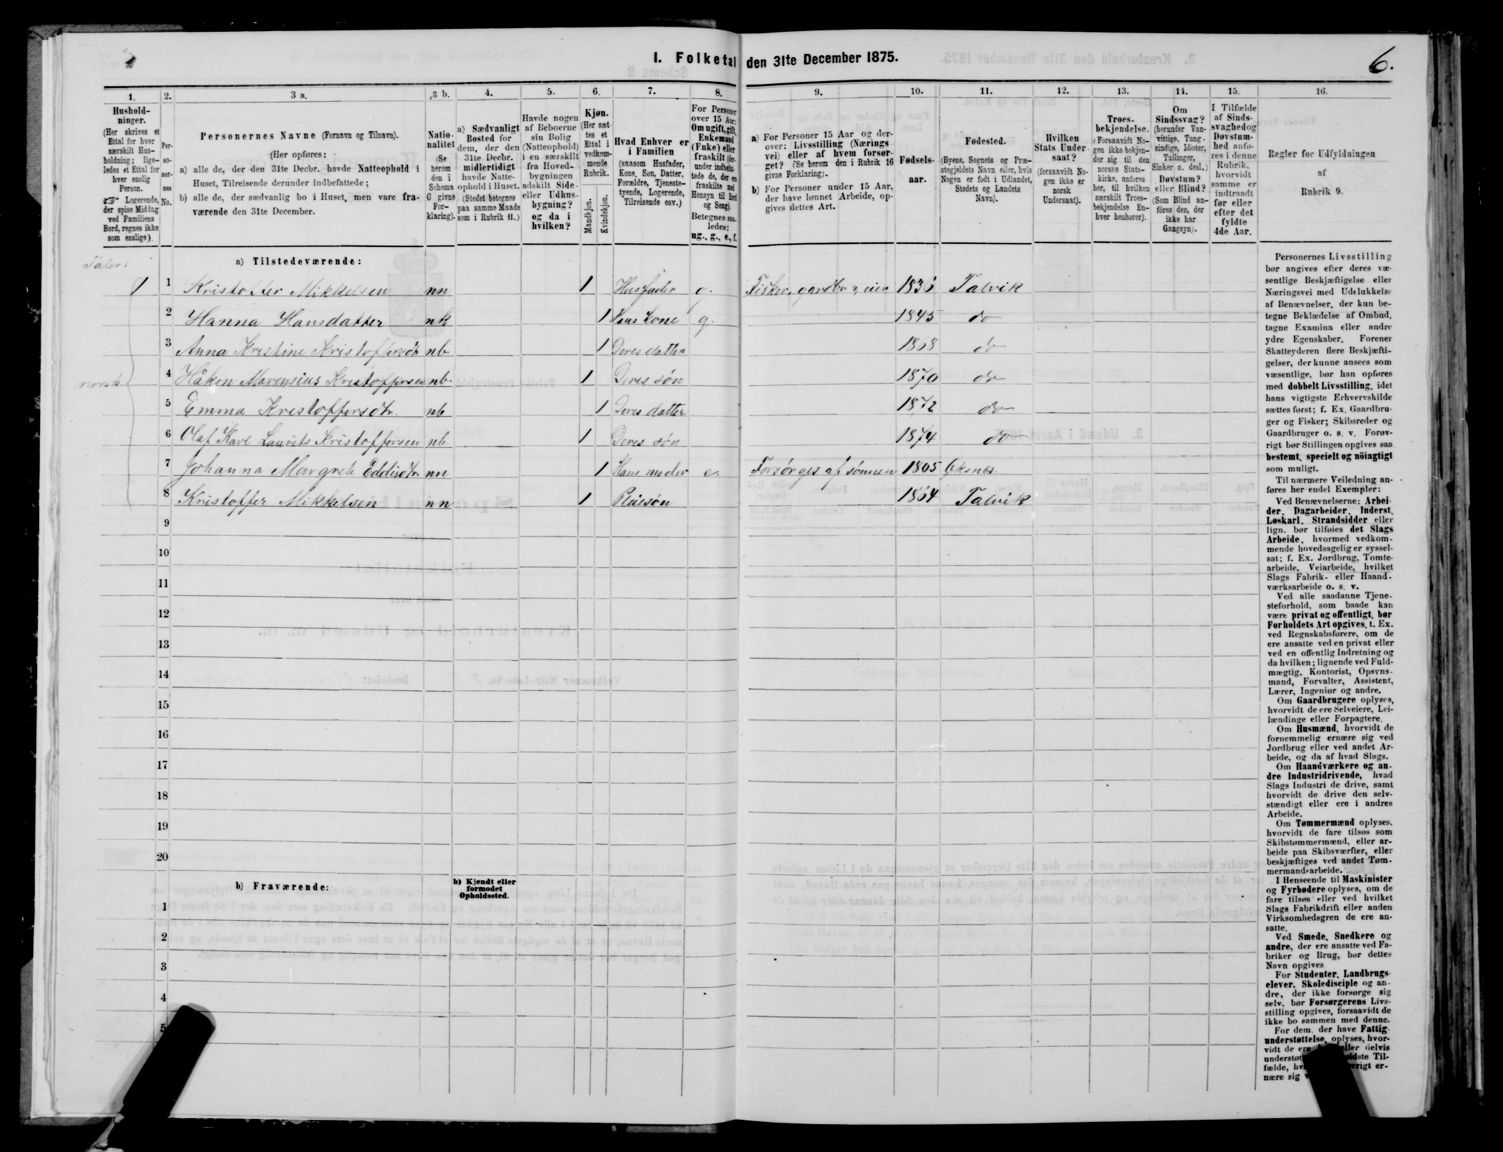 I. Folketal den 31te December 1875.
6.
1. 2. 3 a. 3 b. 4. 5. 6. 7. 8. 9. 10. 11. 12. 13. 14. 15. 16.
Hushold-
ninger.
(Her skrives et
Ettal for hver
særskilt Hus-
holdning; lige-
ledes et Ettal for
hver enslig
Person.
☞ Logerende,
der spise Middag
ved Familiens
Bord, regnes ikke
som enslige).
Per-
so-
ner-
nes
No.
Personernes Navne (Fornavn og Tilnavn).
(Her opføres:
a) alle de, der den 31te Decbr. havde Natteophold i
Huset, Tilreisende derunder indbefattede;
b) alle de, der sædvanlig bo i Huset, men vare fra-
værende den 31te December.
Natio-
nalitet
(Se
herom
den i
Schema
G givne
For-
klaring).
a) Sædvanligt
Bosted for
dem, der den
31te Decbr.
midlertidigt
havde Natte-
ophold i Huset.
(Stedet betegnes
paa samme Maade
som i Rubrik 11.)
Havde nogen
af Beboerne
sin Bolig
(Natteophold)
i en særskilt
fra Hoved-
bygningen
adskilt Side-
eller Udhus-
bygning?
og da i
hvilken?
Kjøn.
(Her sæt-
tes et
Ettal i
vedkom-
mende
Rubrik.
Mandkjøn.
Kvindekjøn.
Hvad Enhver er
i Familien
(saasom Husfader,
Kone, Søn, Datter,
Forældre, Tjeneste-
tyende, Logerende,
Tilreisende osv.)
For Personer
over 15 Aar:
Om ugift, gift,
Enkemand
(Enke) eller
fraskilt
og Seng).
Betegnes saa-
ledes:
ug., g., e, f.
a) For Personer 15 Aar og der-
over: Livsstilling (Nærings-
vei) eller af hvem forsør-
get? (Se herom den i Rubrik 16
givne Forklaring).
b) For Personer under 15 Aar,
der have lønnet Arbeide, op-
gives dettes Art.
Fødsels-
aar.
Fødested.
(Byens, Sognets og Præ-
stegjeldets Navn eller, hvis
Nogen er født i Udlandet,
Stedets og Landets
Navn).
Hvilken
Stats Under-
saat?
(forsaavidt No-
gen ikke er
norsk
Undersaat).
Troes-
bekjendelse.
(Forsaavidt No-
gen ikke bekjen-
der sig til den
norske Stats-
kirke, anføres
her, til hvilken
særskilt Troes-
bekjendelse En-
hver henhører).
Om
Sindssvag?
(herunder Van-
vittige, Tung-
sindige, Idioter,
Tullinger,
Sinker o. desl.)
Døvstum?
eller Blind?
(Som Blind an-
føres den, der
ikke har
Gangsyn).
I Tilfælde
af Sinds-
svaghed og
Døvstum-
hed anfø-
res i denne
Rubrik,
hvorvidt
samme er
indtraadt
før eller
efter det
fyldte
4de Aar.
Regler for Udfyldningen
af
Rubrik 9.
a) Tilstedeværende:
1 1 Kristoffer Mikkelsen nn 1 Husfader g. Fisker, gardbr, eier 1836 Talvik
2 Hanna Hansdatter nk 1 Hans Kone g. 1845 do
3 Anna Kristine Kristoffersdtr nb 1 Deres datter 1868 do
norsk
4 Håkon Marensius Kristoffersen nb 1 Deres søn 1870 do
5 Emma Kristoffersdtr. nb 1 Deres datter 1872 do
6 Olaf Karl Laurits Kristoffersen nb 1 Deres søn 1874 do
7 Johanna Margrete Eddisdtr. nn 1 Hans moder e. Forsørges af sønnen 1805 Øksnes.
8 Kristoffer Mikkelsen nn 1 Pleiesøn 1864 Talvik
9
10
11
12
13
14
15
16
17
18
19
20
b) Fraværende:
b) Kjendt eller
formodet
Opholdssted.
1
2
3
4
5
Personernes Livsstilling
bør angives efter deres væ-
sentlige Beskjæftigelse eller
Næringsvei med Udelukkelse
af Benævnelser, der kun be-
tegne Beklædelse af Ombud,
tagne Examina eller andre
ydre Egenskaber. Forener
Skatteyderen flere Beskjæfti-
gelser, der kunne ansees som
væsentlige, bør han opføres
med dobbelt Livsstilling, idet
hans vigtigste Erhvervskilde
sættes først; f. Ex. Gaardbru-
ger og Fisker; Skibsreder og
Gaardbruger o. s. v. Forøv-
rigt bør Stillingen opgives saa
bestemt, specielt og nøiagtigt
som muligt.
Til nærmere Veiledning an-
føres her endel Exempler:
Ved Benævnelserne: Arbei-
der, Dagarbeider, Inderst,
Løskarl, Strandsidder eller
lign. bør tilføies det Slags
Arbeide, hvormed vedkom-
mende hovedsagelig er syssel-
sat; f. Ex. Jordbrug, Tomte-
arbeide, Veiarbeide, hvilket
Slags Fabrik- eller Haand-
værksarbeide o. s. v.
Ved alle saadanne Tjene-
steforhold, som baade kan
være privat og offentligt, bør
Forholdets Art opgives, t. Ex.
ved Regnskabsførere, om de
ere ansatte ved en privat eller
ved en offentlig Indretning og
da hvilken; lignende ved Fuld-
mægtig, Kontorist, Opsyns-
mand, Forvalter, Assistent,
Lærer, Ingeniør og andre.
Om Gaardbrugere oplyses,
hvorvidt de ere Selveiere, Lei-
lændinge eller Forpagtere.
Om Husmænd, hvorvidt de
fornemmelig ernære sig ved
Jordbrug eller ved andet Ar-
beide, og da af hvad Slags.
Om Haandværkere og an-
dre Industridrivende, hvad
Slags Industri de drive, samt
hvorvidt de drive den selv-
stændigt eller ere i andres
Arbeide.
Om Tømmermænd oplyses,
hvorvidt de fare tilsøs som
Skibstømmermænd, eller ar-
beide paa Skibsværfter, eller
beskjæftiges ved andet Tøm-
mermandsarbeide.
I Henseende til Maskinister
og Fyrbødere oplyses, om de
fare tilsøs eller ved hvilket
Slags Fabrikdrift eller anden
Virksomhedsgren de ere an-
satte.
Ved Smede, Snedkere og
andre, der ere ansatte ved Fa-
briker og Brug, bør dettes
Navn opgives
For Studenter, Landbrugs-
elever, Skoledisciple og an-
dre, der ikke forsørge sig
selv, bør Forsørgerens Livs-
stilling opgives, forsaavidt de
ikke bo sammen med denne.
For dem, der have Fattig-
understøttelse, oplyses, hvor-
vidt de ere eller delvis